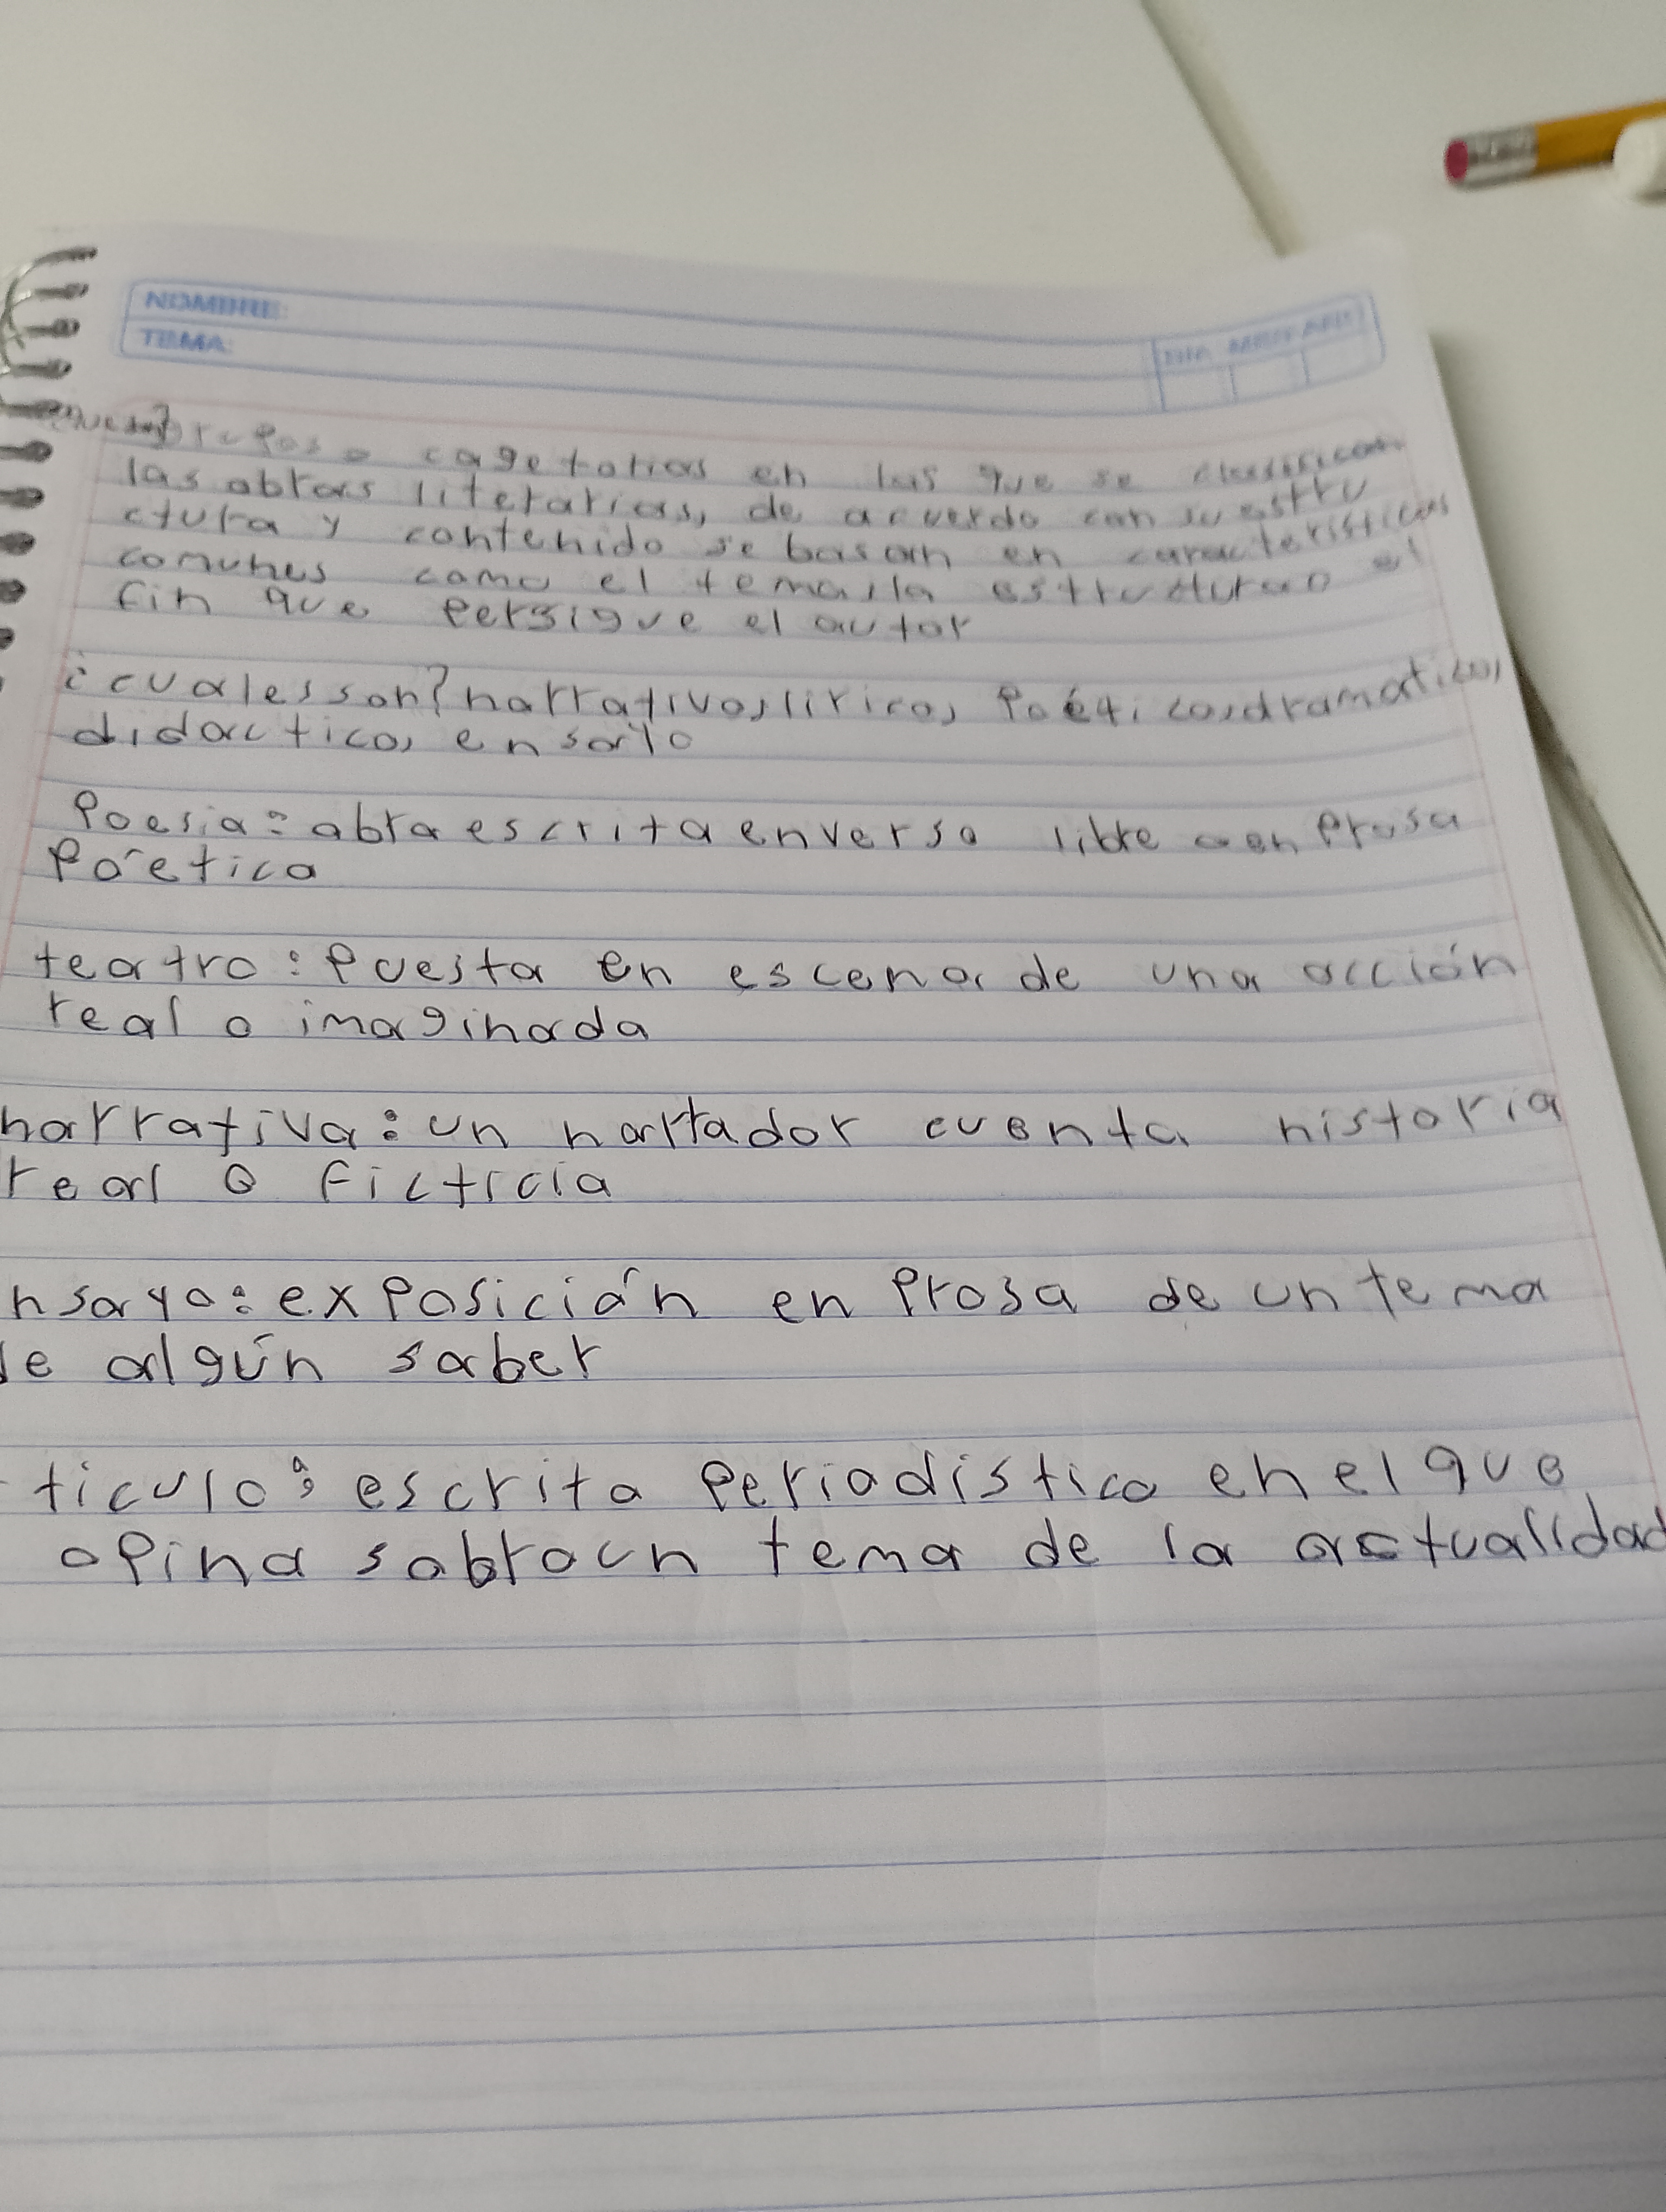 NOMBRE:
TEMA:
DIA MES AÑO
grupos o cagetorias en las que se clasifican
las obras literarias, de acuerdo con su estru
ctura y contenido se basan en caracteristicas
comunes como el tema, la estructura o el
fin que persigue el autor
¿cuales son? narrativos, liricos, poéticos, dramaticos,
didacticos, ensallo
Poesia: obra escrita en verso libre o en prosa
poética
teatro: puesta en escena de una acción
real o imaginada
narrativa: un narrador cuenta historia
real o ficticia
nsayo: exposición en prosa de un tema
de algún saber
ticulo: escrito periodístico en el que
opina sobra un tema de la actualidad